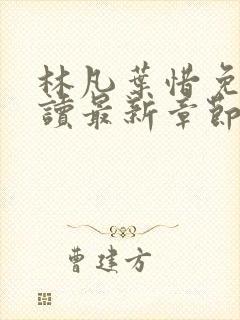 林凡葉惜免
讀最新章節
曹建方